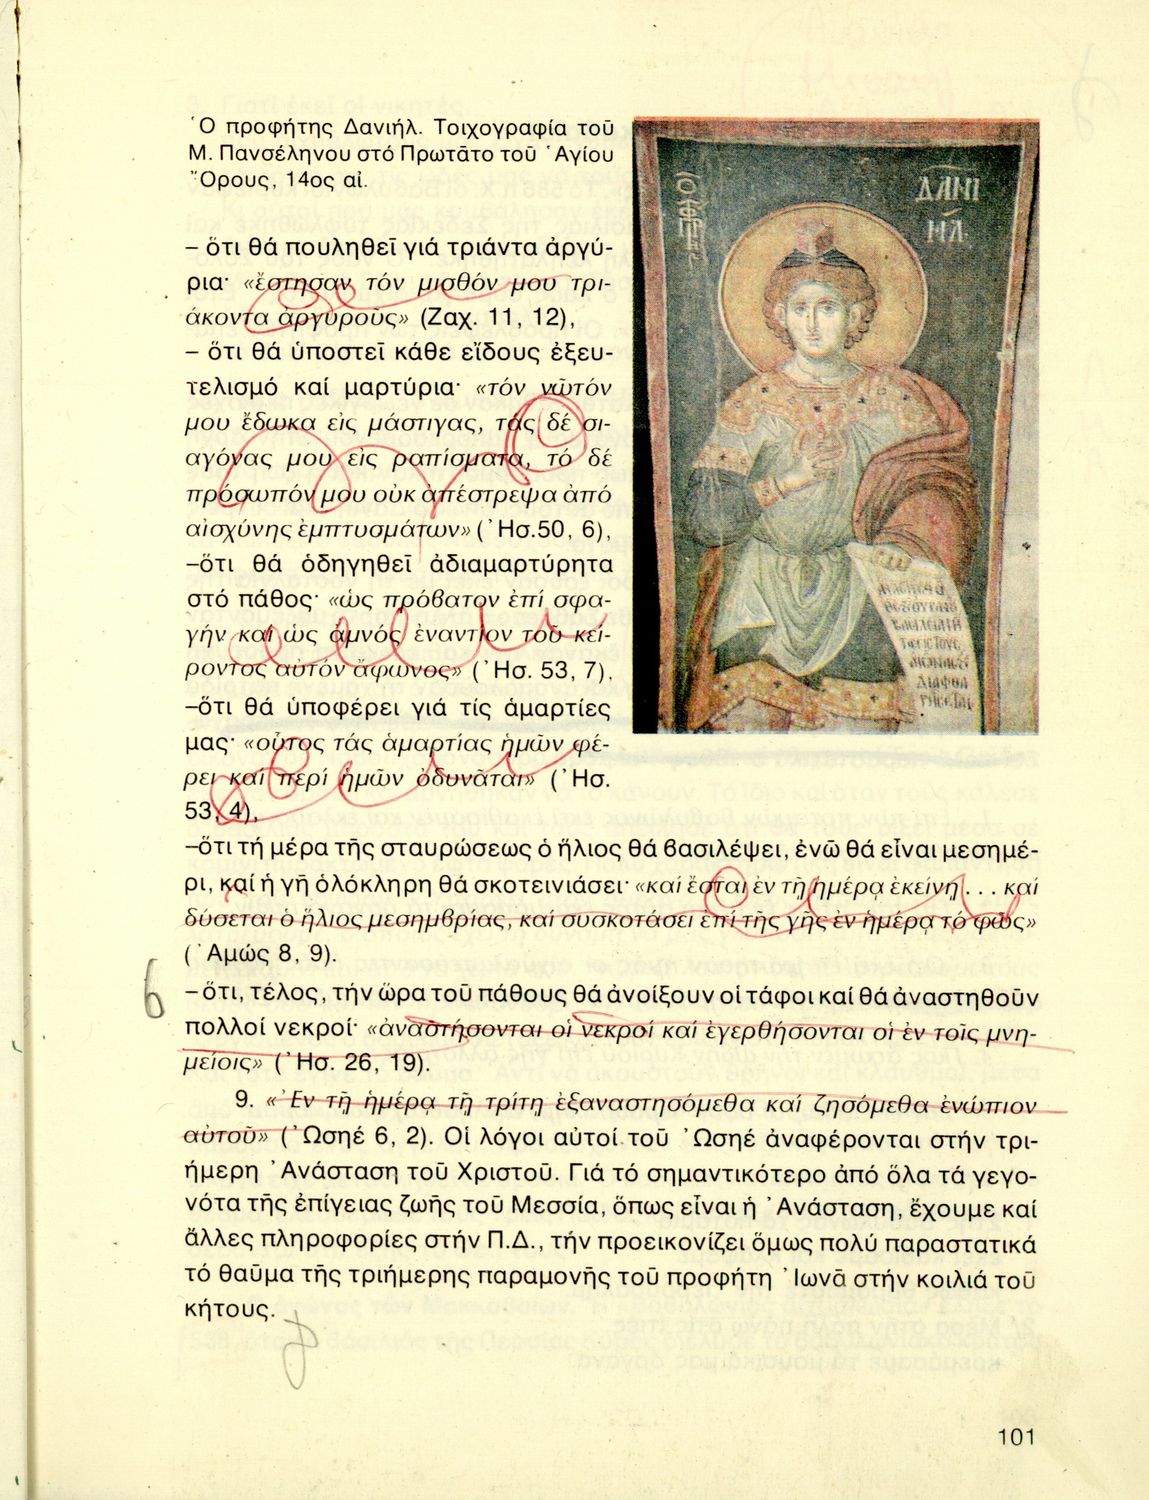 Ὁ προφήτης Δανιήλ. Τοιχογραφία τοῦ
Μ. Πανσέληνου στό Πρωτᾶτο τοῦ Ἁγίου
Ὄρους, 14ος αἰ.
– ὅτι θά πουληθεῖ γιά τριάντα ἀργύ-
ρια· «ἔστησαν τόν μισθόν μου τρι-
άκοντα ἀργυροῦς» (Ζαχ. 11, 12),
– ὅτι θά ὑποστεῖ κάθε εἴδους ἐξευ-
τελισμό καί μαρτύρια· «τόν νῶτόν
μου ἔδωκα εἰς μάστιγας, τάς δέ σι-
αγόνας μου εἰς ραπίσματα, τό δέ
πρόσωπόν μου οὐκ ἀπέστρεψα ἀπό
αἰσχύνης ἐμπτυσμάτων» (Ἡσ.50, 6),
–ὅτι θά ὁδηγηθεῖ ἀδιαμαρτύρητα
στό πάθος· «ὡς πρόβατον ἐπί σφα-
γήν καί ὡς ἀμνός ἐναντίον τοῦ κεί-
ροντος αὐτόν ἄφωνος» (Ἡσ. 53, 7),
–ὅτι θά ὑποφέρει γιά τίς ἁμαρτίες
μας· «οὗτος τάς ἁμαρτίας ἡμῶν φέ-
ρει καί περί ἡμῶν ὀδυνᾶται» (Ἡσ.
53, 4),
–ὅτι τή μέρα τῆς σταυρώσεως ὁ ἥλιος θά βασιλέψει, ἐνῶ θά εἶναι μεσημέ-
ρι, καί ἡ γῆ ὁλόκληρη θά σκοτεινιάσει· «καί ἔσται ἐν τῇ ἡμέρᾳ ἐκείνῃ... καί
δύσεται ὁ ἥλιος μεσημβρίας, καί συσκοτάσει ἐπί τῆς γῆς ἐν ἡμέρᾳ τό φῶς»
(Ἀμώς 8, 9).
–ὅτι, τέλος, τήν ὥρα τοῦ πάθους θά ἀνοίξουν οἱ τάφοι καί θά ἀναστηθοῦν
πολλοί νεκροί· «ἀναστήσονται οἱ νεκροί καί ἐγερθήσονται οἱ ἐν τοῖς μνη-
μείοις» (Ἡσ. 26, 19).
9. «Ἐν τῇ ἡμέρᾳ τῇ τρίτῃ ἐξαναστησόμεθα καί ζησόμεθα ἐνώπιον
αὐτοῦ» (Ὡσηέ 6, 2). Οἱ λόγοι αὐτοί τοῦ Ὡσηέ ἀναφέρονται στήν τρι-
ήμερη Ἀνάσταση τοῦ Χριστοῦ. Γιά τό σημαντικότερο ἀπό ὅλα τά γεγο-
νότα τῆς ἐπίγειας ζωῆς τοῦ Μεσσία, ὅπως εἶναι ἡ Ἀνάσταση, ἔχουμε καί
ἄλλες πληροφορίες στήν Π.Δ., τήν προεικονίζει ὅμως πολύ παραστατικά
τό θαῦμα τῆς τριήμερης παραμονῆς τοῦ προφήτη Ἰωνᾶ στήν κοιλιά τοῦ
κήτους.
101
ΔΑΝΙ
ΗΛ